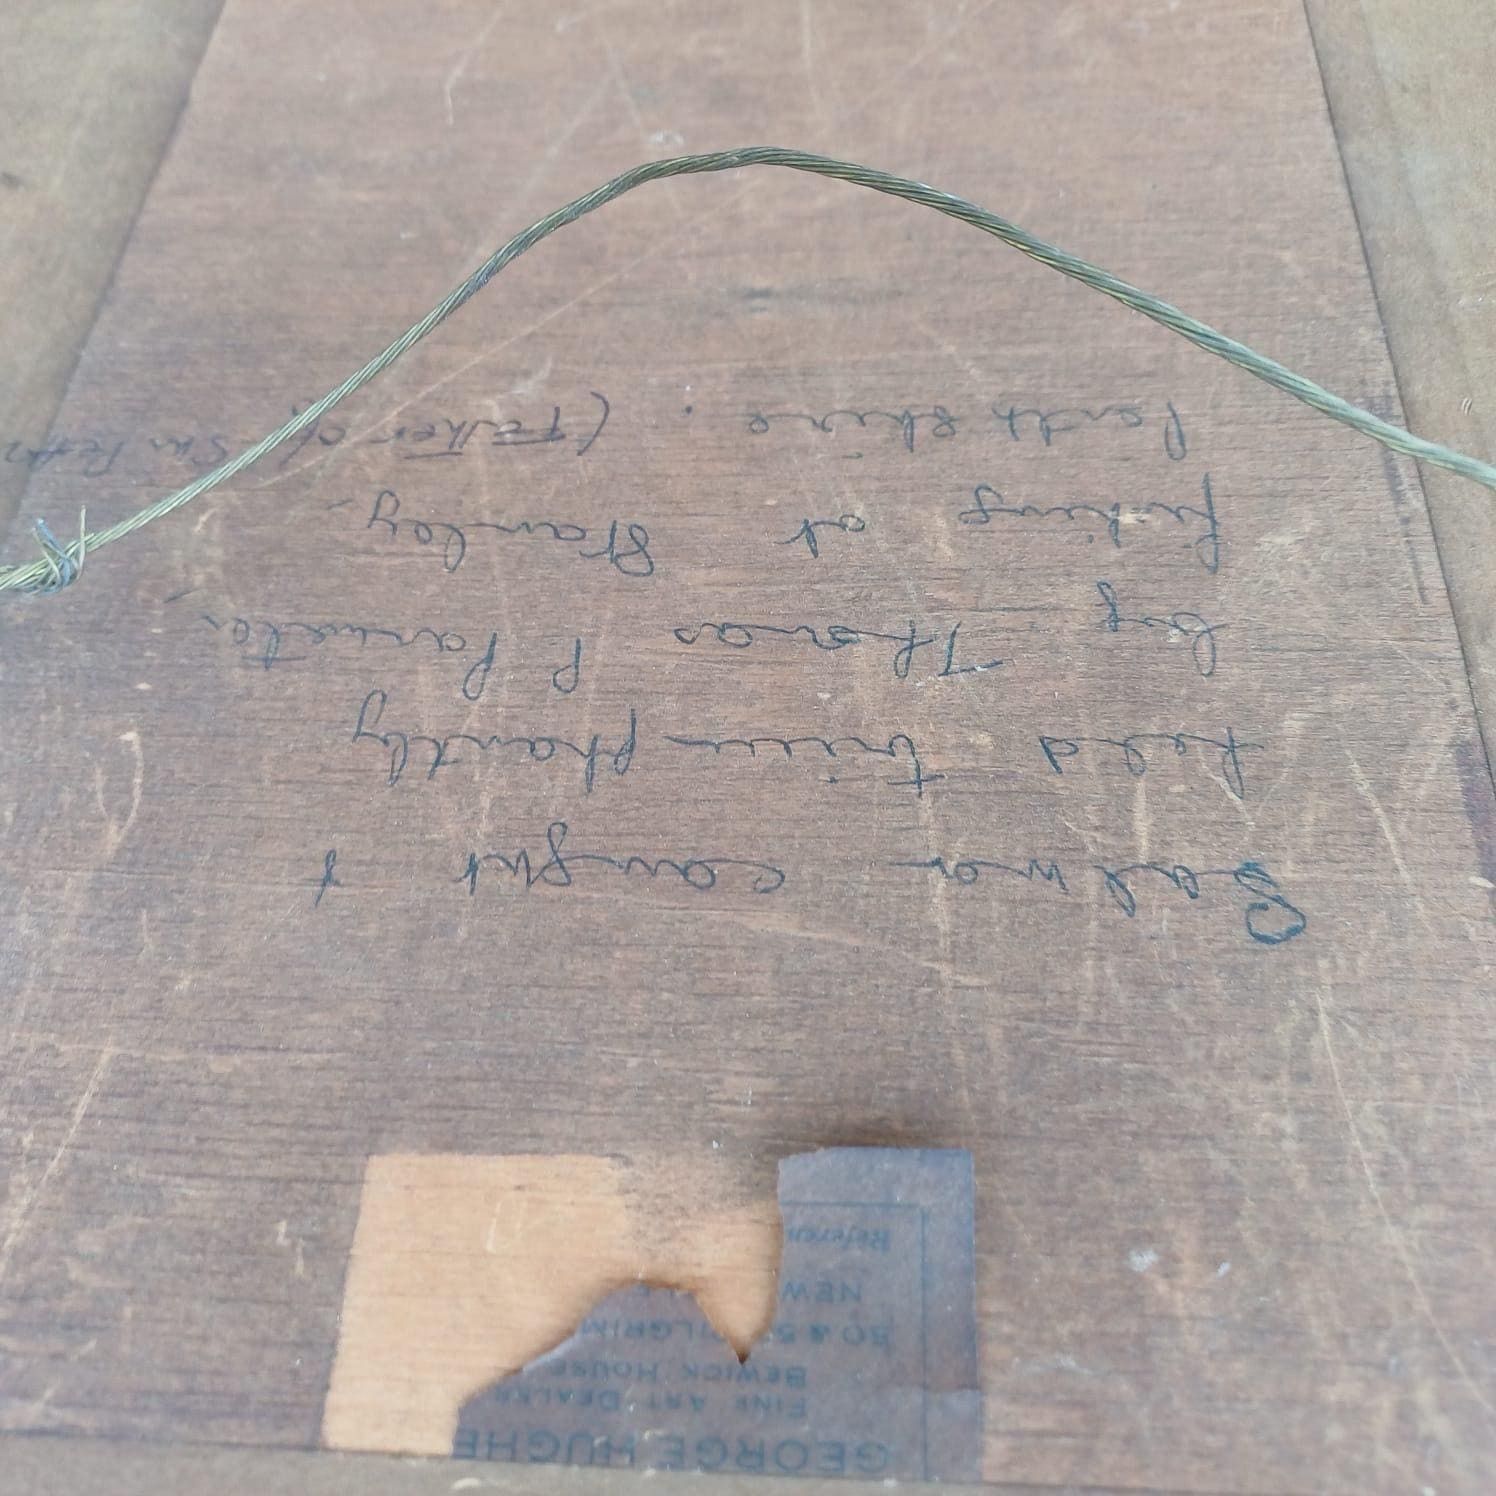 Salmon caught &
held trium phantly
by Thomas P Panula.
fishing at Stanley -
Perth shire. (Father of Sir Peter
GEORGE HUGHE
FINE ART DEALER
BEWICK HOUSE
50 & 5 ILGRIM
NEW LE
Referen